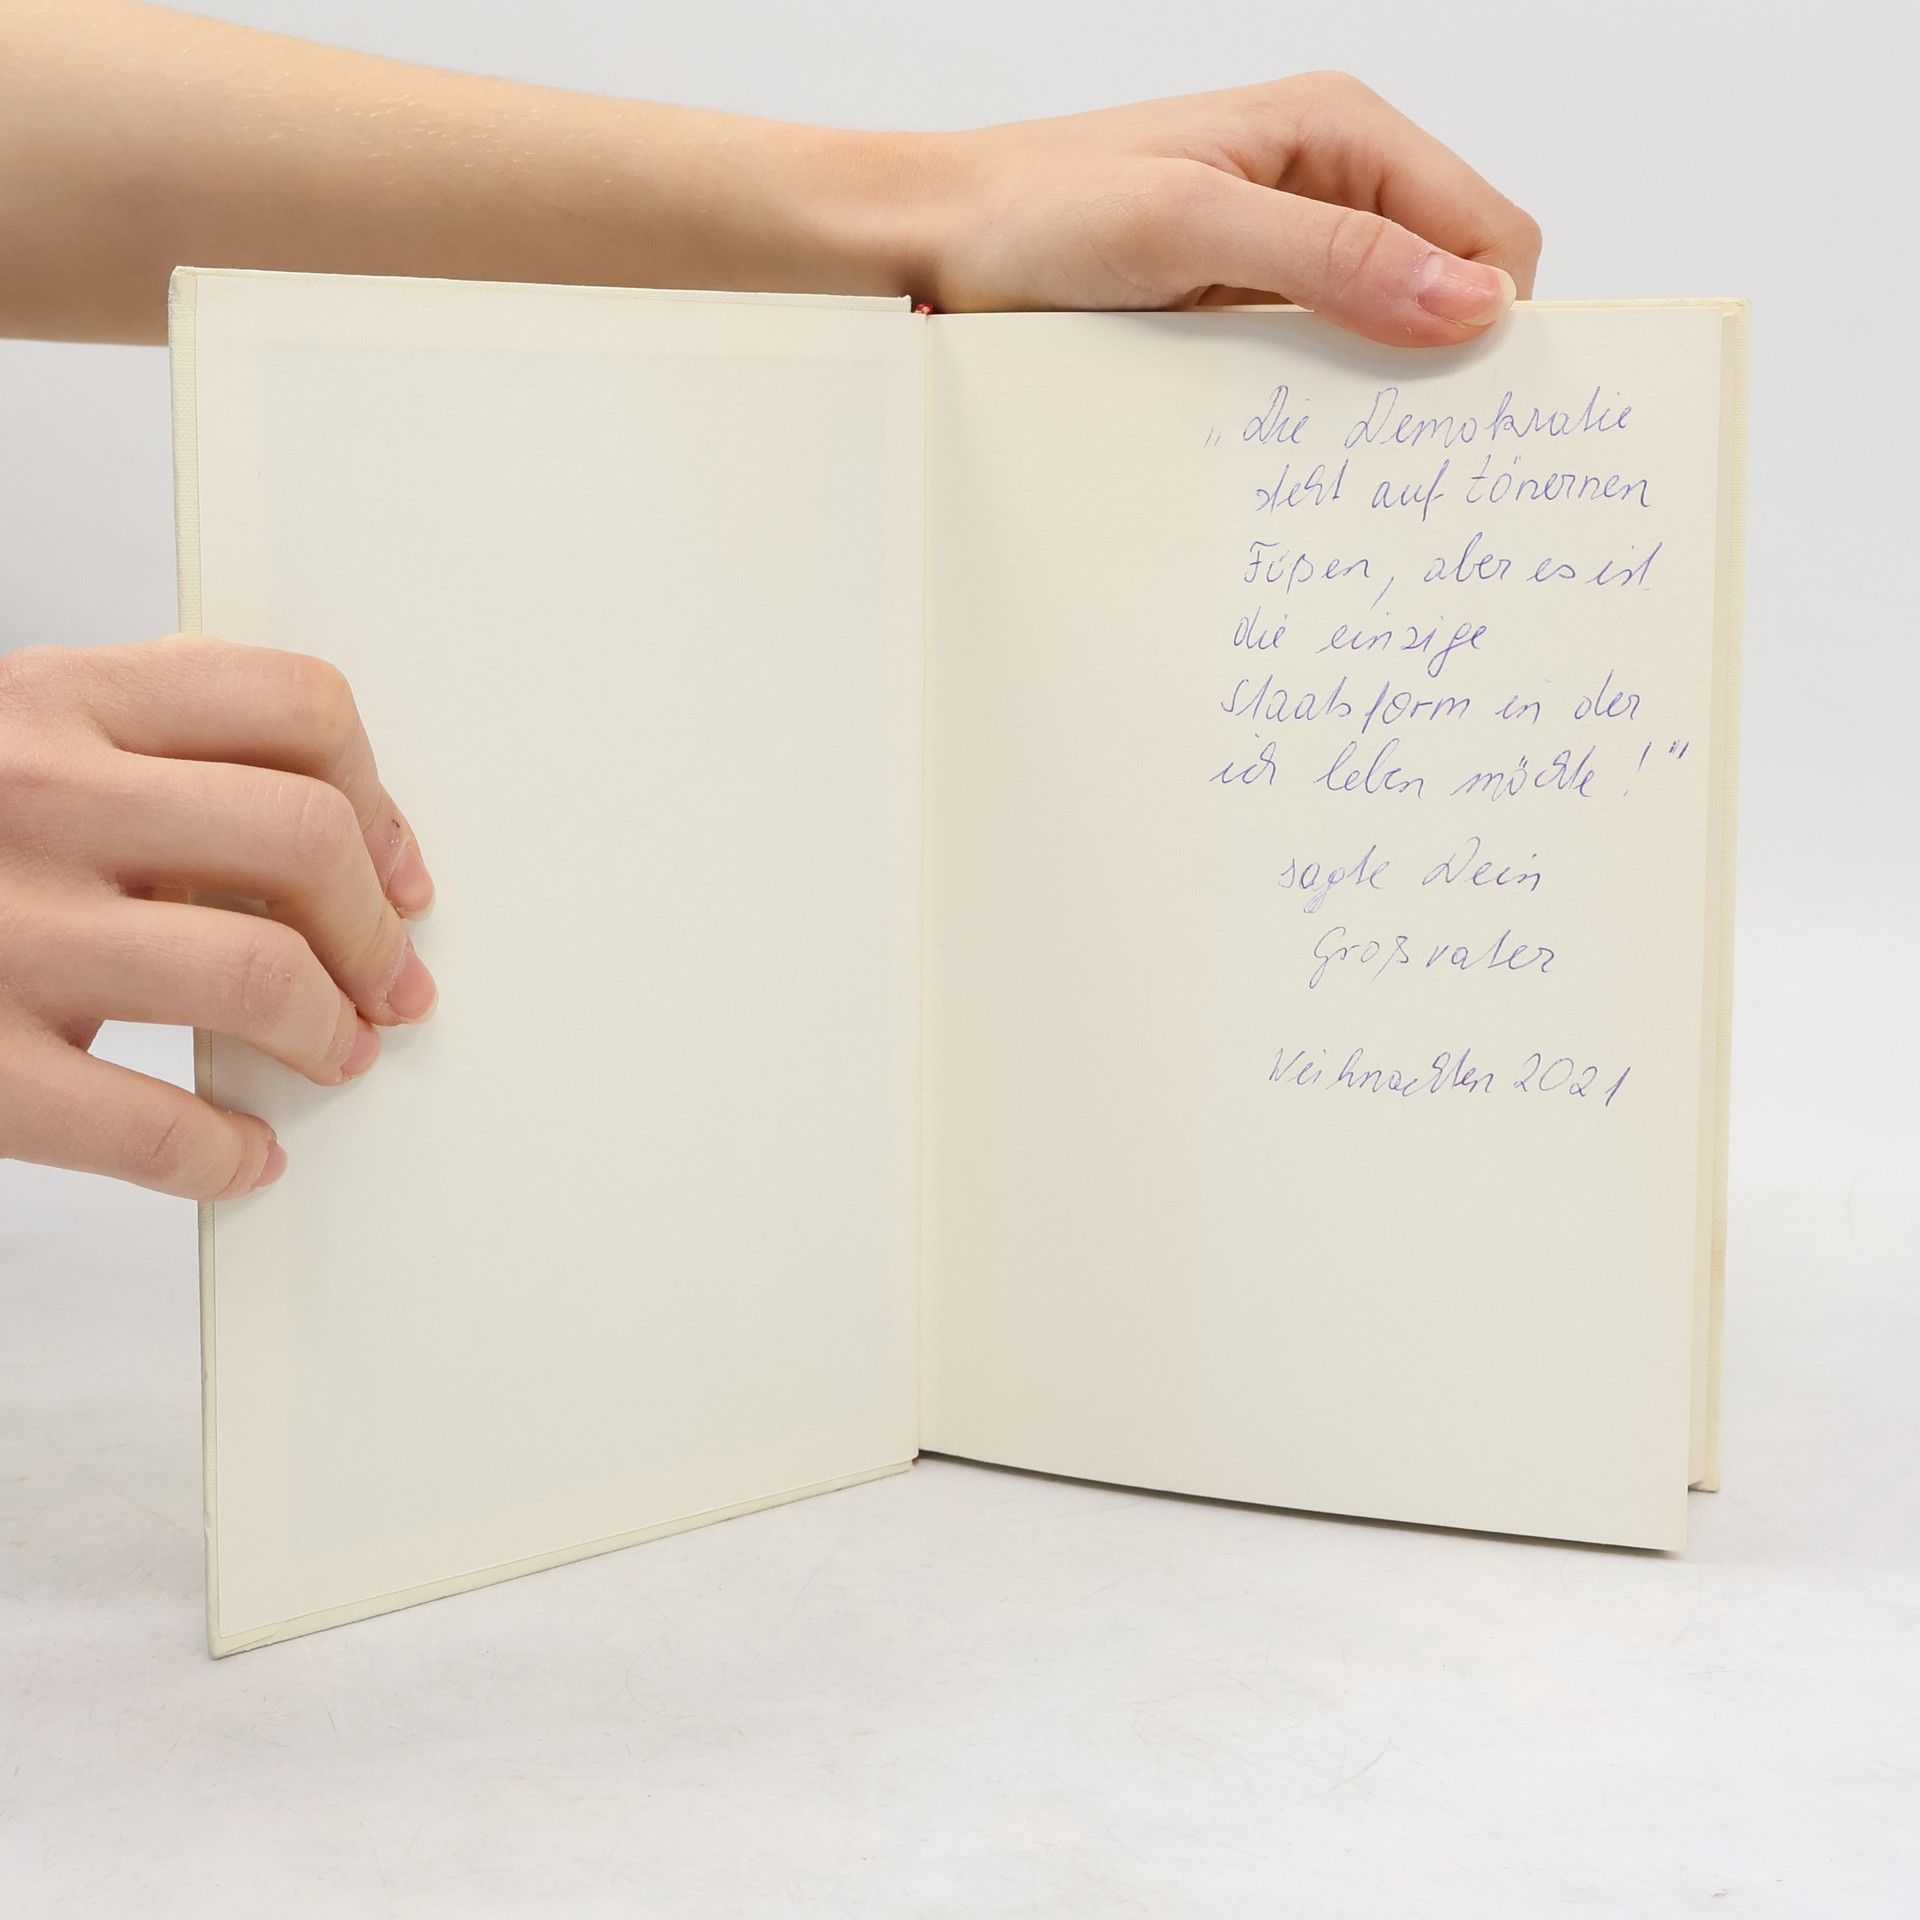 „Die Demokratie
steht auf tönernen
Füßen, aber es ist
die einzige
Staatsform in der
ich leben möchte!"
sagte Dein
Großvater
Weihnachten 2021